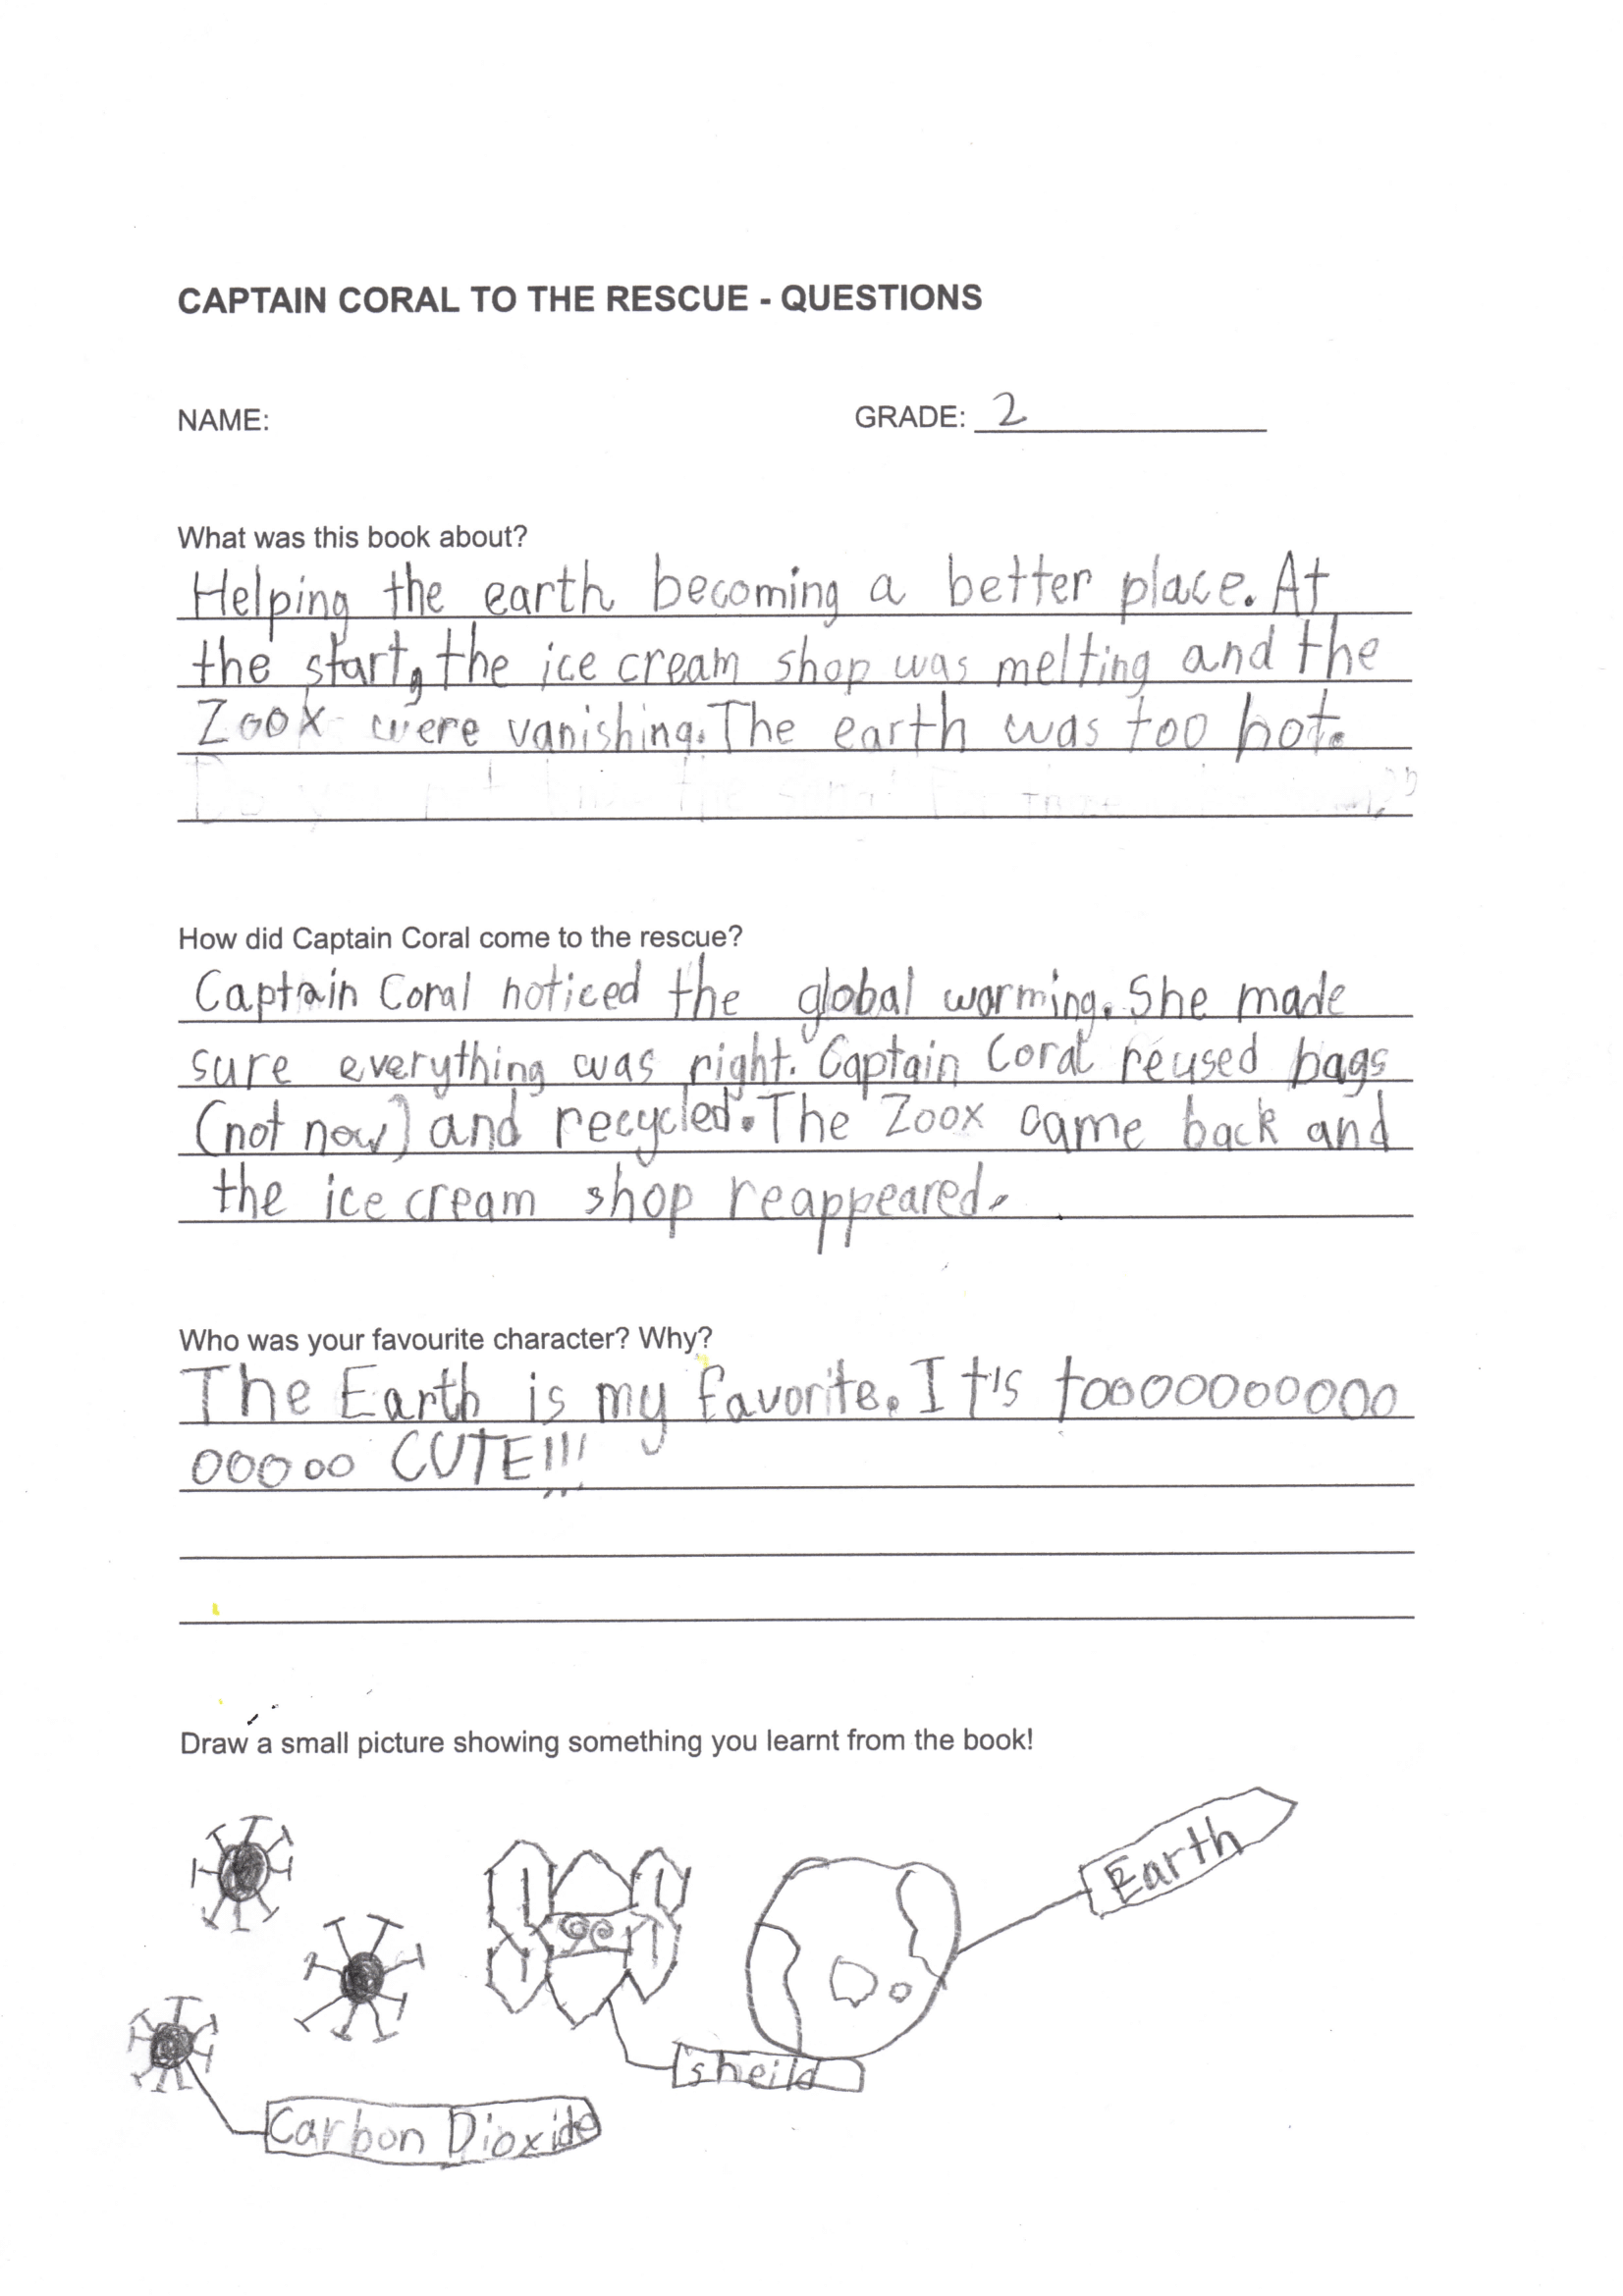 CAPTAIN CORAL TO THE RESCUE - QUESTIONS
NAME: GRADE: 2
What was this book about?
Helping the earth becoming a better place. At
the start, the ice cream shop was melting and the
Zoox were vanishing. The earth was too hot.
How did Captain Coral come to the rescue?
Captain Coral noticed the global warming. She made
sure everything was right. Captain Coral reused bags
(not now) and recycled. The Zoox came back and
the ice cream shop reappeared.
Who was your favourite character? Why?
The Earth is my favorite. It's toooooooooooo
oooooo CUTE!!!
Draw a small picture showing something you learnt from the book!
Earth
sheild
Carbon Dioxide